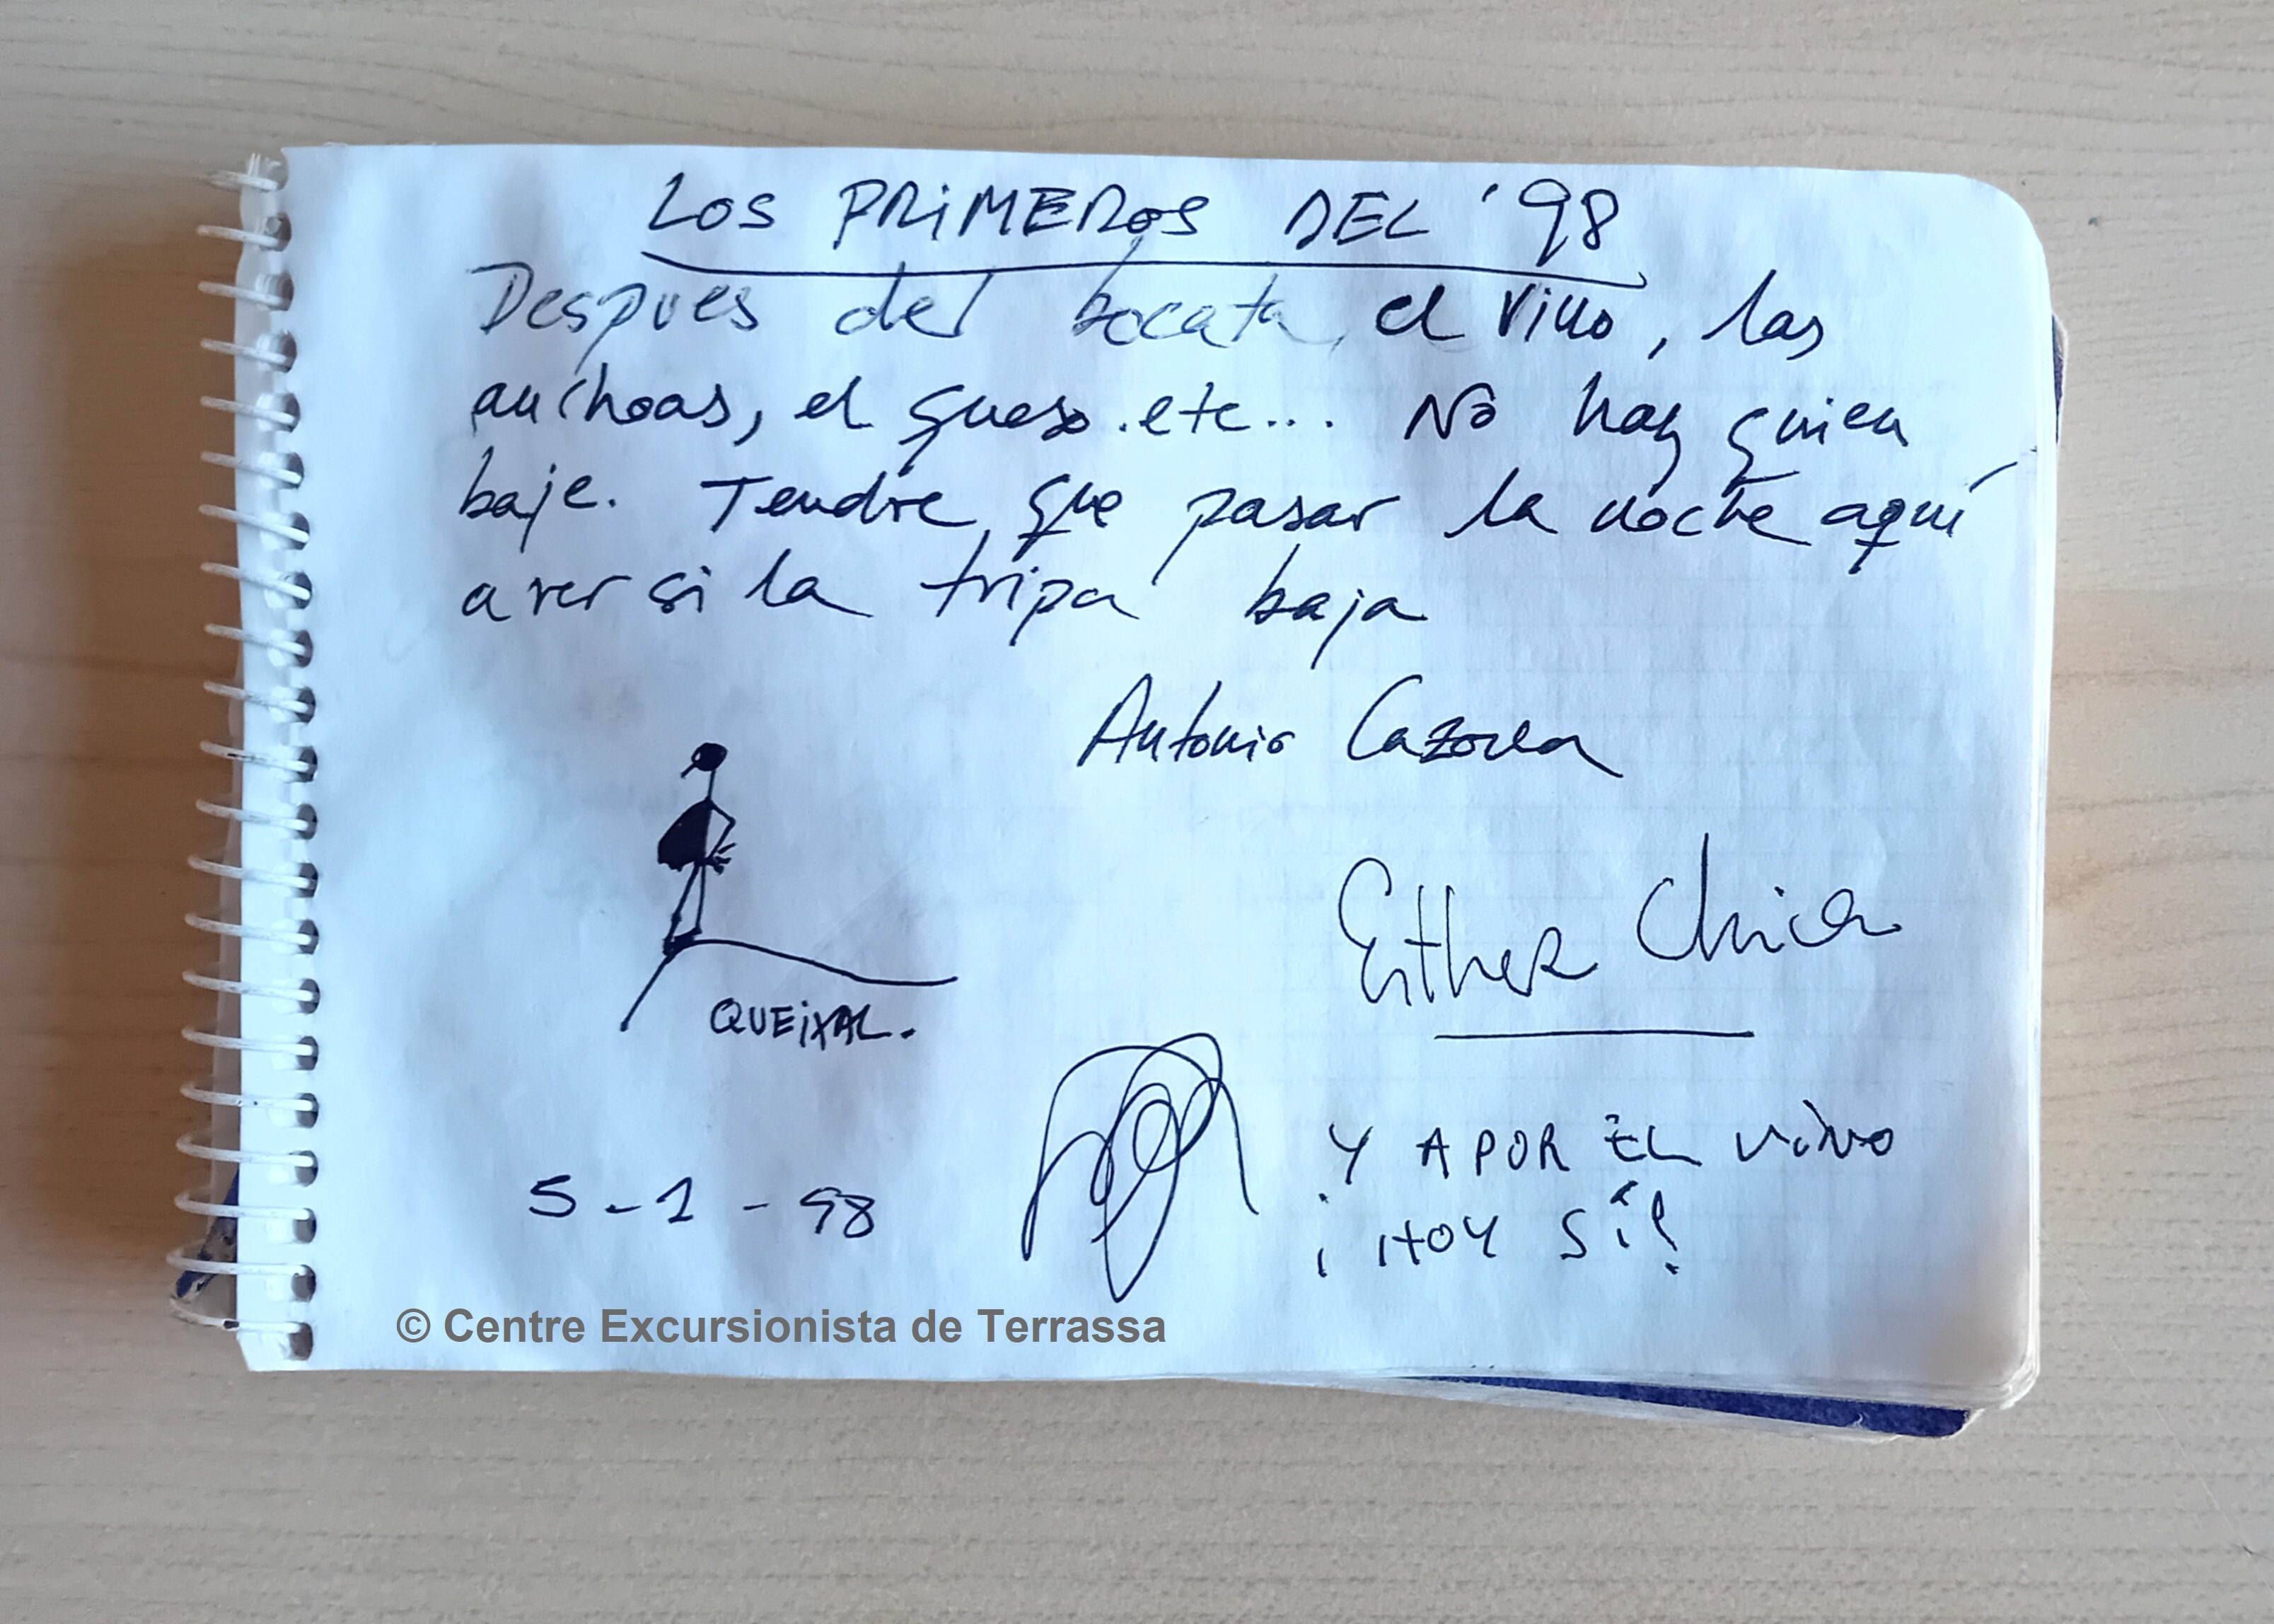 LOS PRIMEROS DEL '98
Despues del bocata, el vino, las
anchoas, el queso. etc... No hay quien
baje. Tendre que pasar la noche aquí
a ver si la tripa baja
Antonio Cazorla
Esther Chica
QUEIXAL.
Y A POR EL VINO
5-1-98
¡HOY SÍ!
© Centre Excursionista de Terrassa